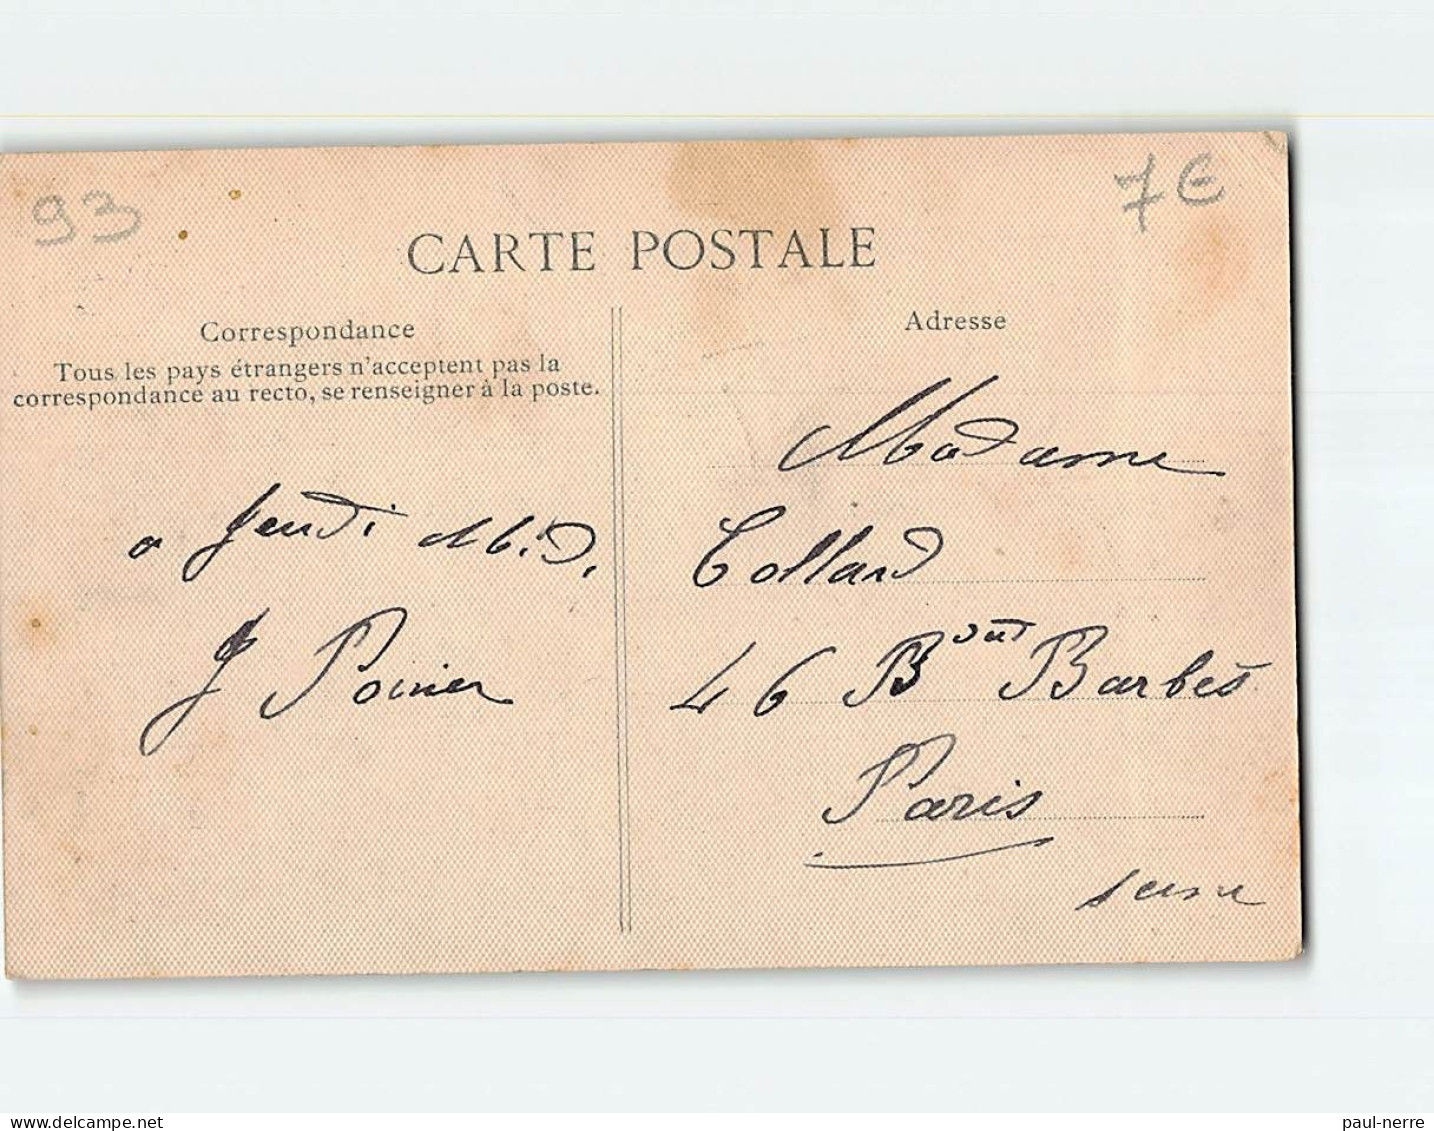 93
7€
CARTE POSTALE
Correspondance
Tous les pays étrangers n'acceptent pas la
correspondance au recto, se renseigner à la poste.
a Jeudi
J Poirier
Adresse
Madame
Collard
46 Bout Barbès
Paris
Seine
www.delcampe.net
paul-nerre